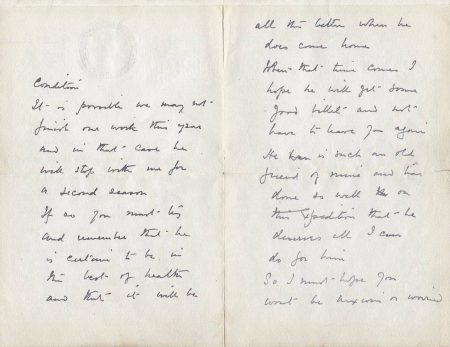 Condition
It is possible we may not
finish our work this year
and in that case he
will stop with me for
a second season
If so you must try
and remember that he
is certain to be in
the best of health
and that it will be
all the better when he
does come home
When that time comes I
hope he will get some
good billet and not
have to leave you again
He is such an old
friend of mine and has
done so well on
this Expedition that he
deserves all I can
do for him
So I must hope you
wont be anxious or worried